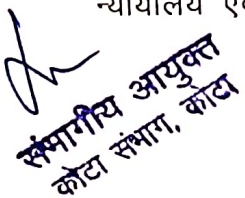 न्यायालय ए
संभागीय आयुक्त
कोटा संभाग, कोटा